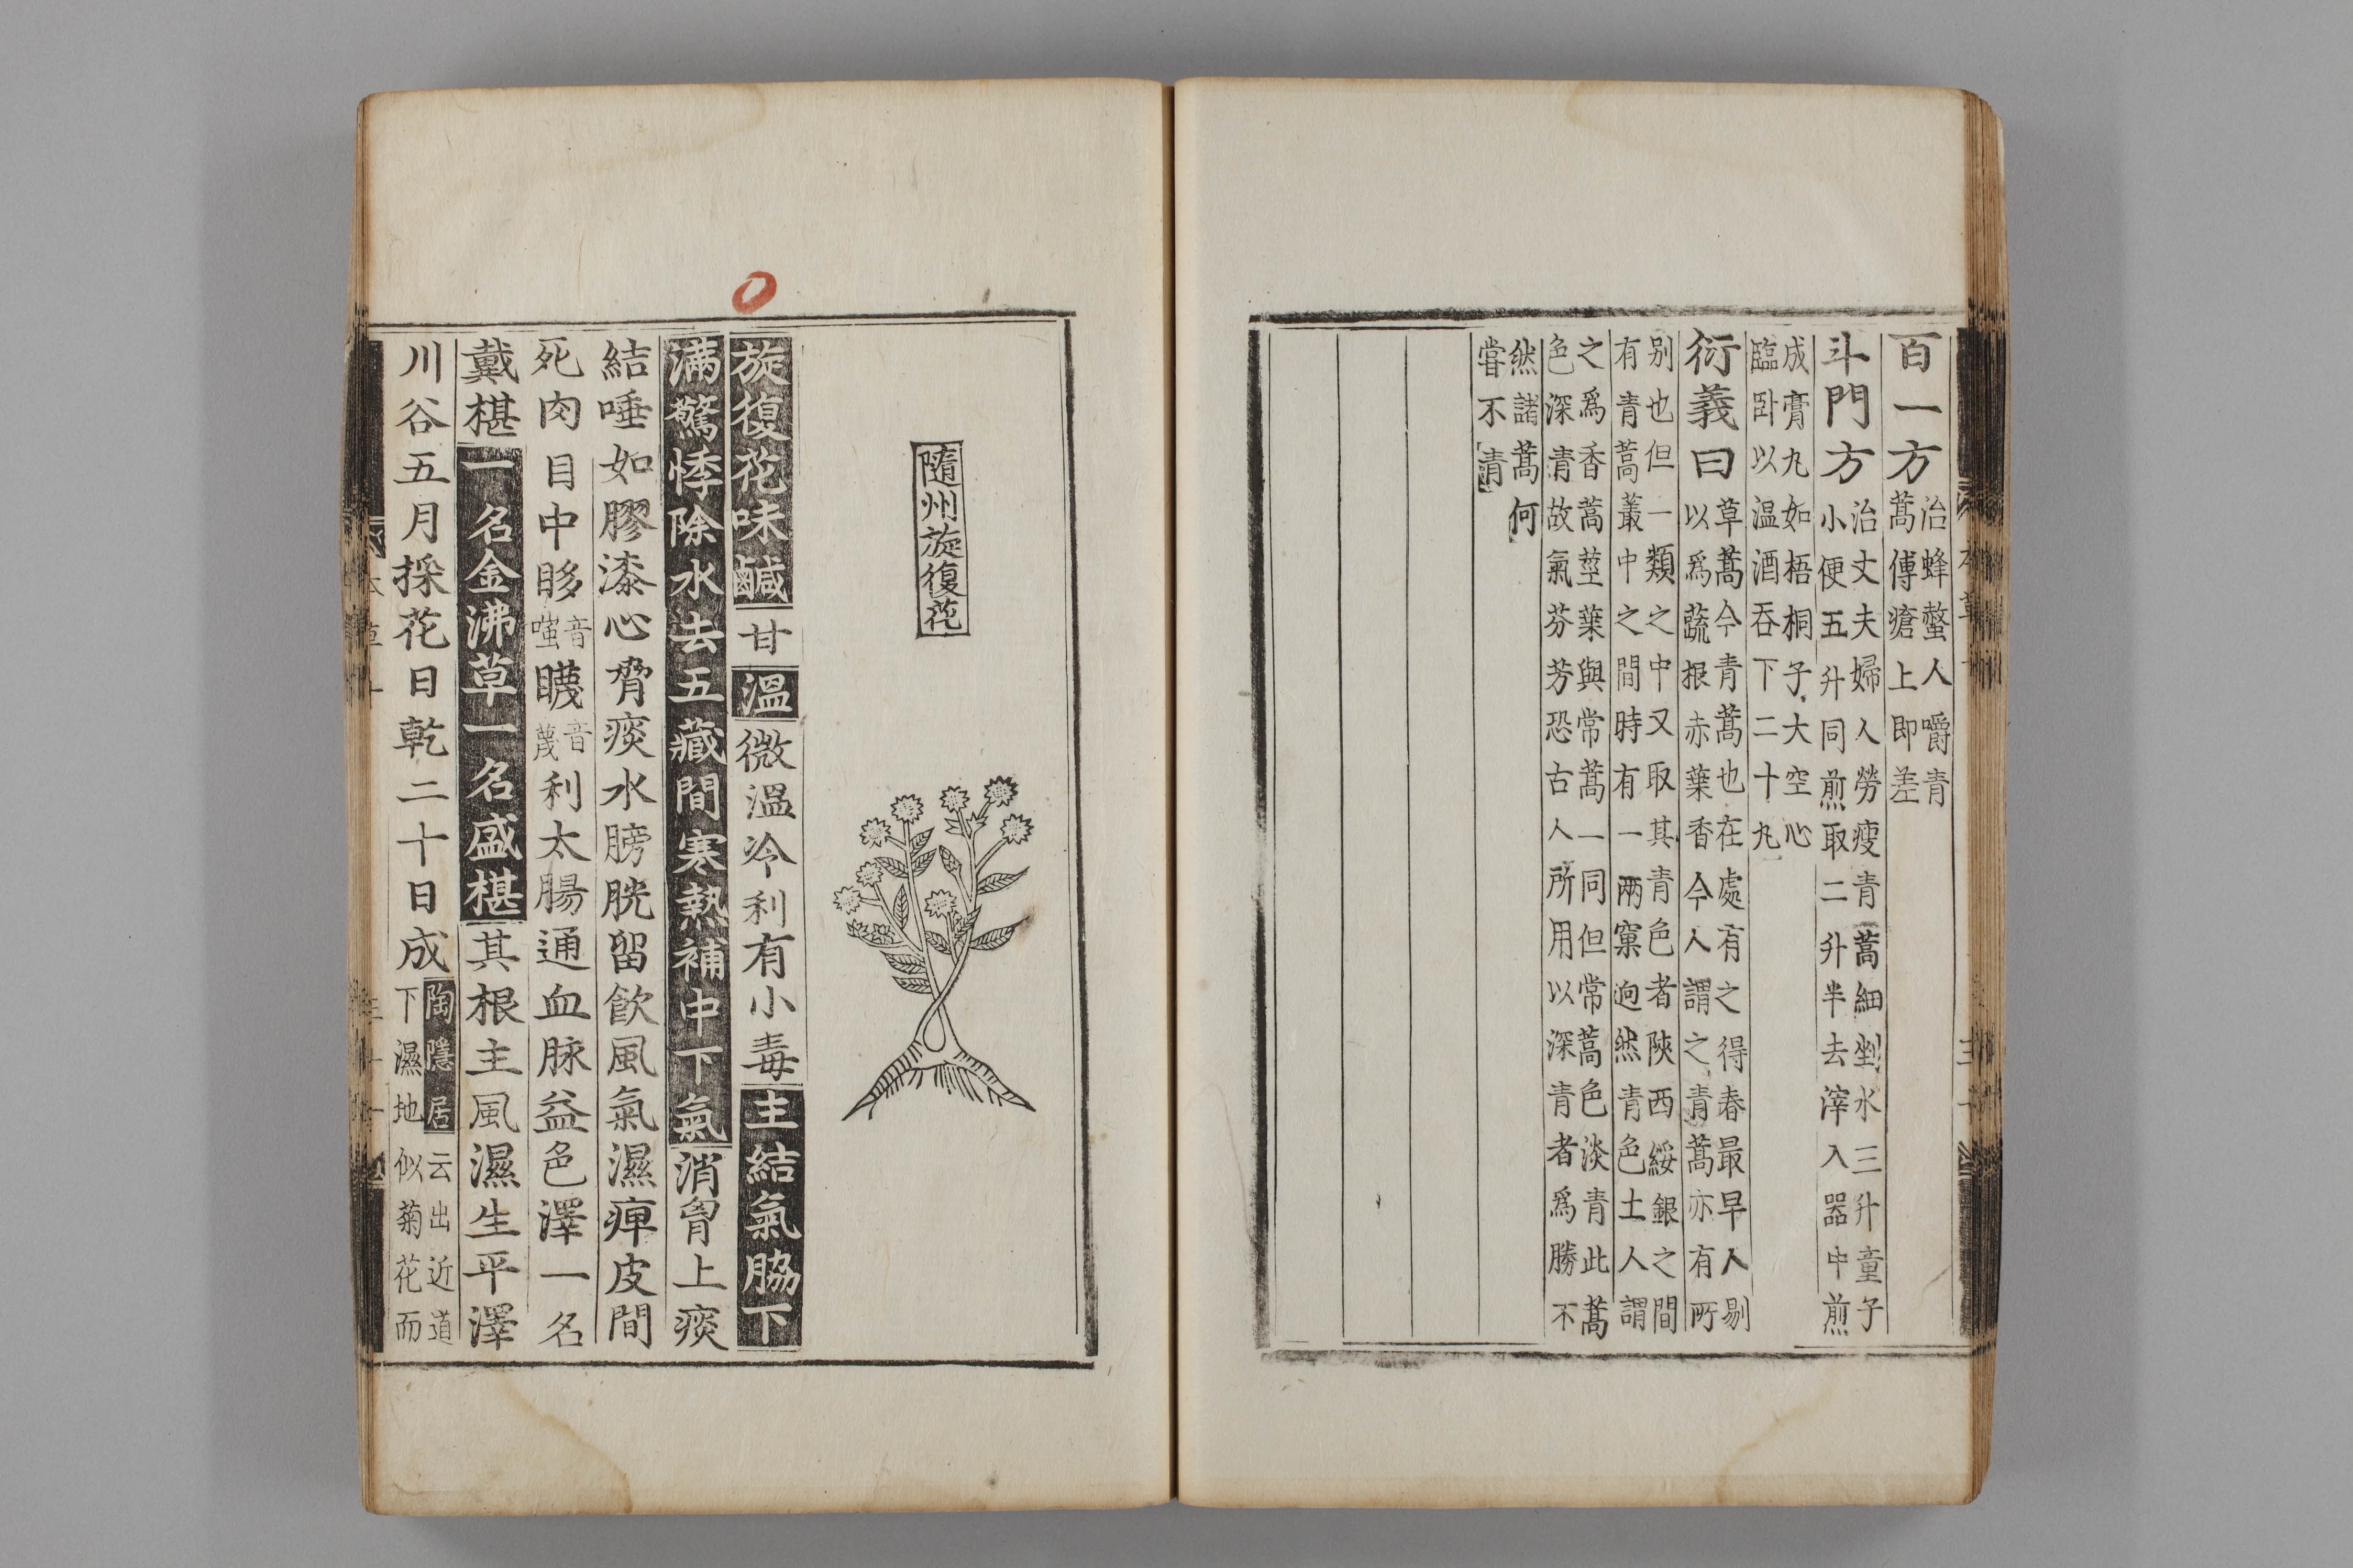 百一方治蜂螫人嚼青
蒿傅瘡上即差
斗門方治丈夫婦人勞瘦青蒿細剉水三升童子
小便五升同煎取二升半去滓入器中煎
成膏丸如梧桐子大空心
臨卧以温酒吞下二十丸
衍義曰草蒿今青蒿也在處有之得春最早人剔
以爲蔬根赤葉香今人謂之青蒿亦有所
别也但一類之中又取其青色者陝西綏銀之間
有青蒿叢中之間時有一兩窠迥然青色土人謂
之爲香蒿莖葉與常蒿一同但常蒿色淡青此蒿
色深青故氣芬芳恐古人所用以深青者爲勝不
然諸蒿何
嘗不青
隨州旋復花
旋復花味鹹甘溫微溫冷利有小毒主結氣脇下
滿驚悸除水去五藏間寒熱補中下氣消胷上痰
結唾如膠漆心脅痰水膀胱留飲風氣濕痺皮間
死肉目中眵音𥉠䁾音蔑利太腸通血脉益色澤一名
戴椹一名金沸草一名盛椹其根主風濕生平澤
川谷五月採花日乾二十日成陶隱居云出近道
下濕地似菊花而